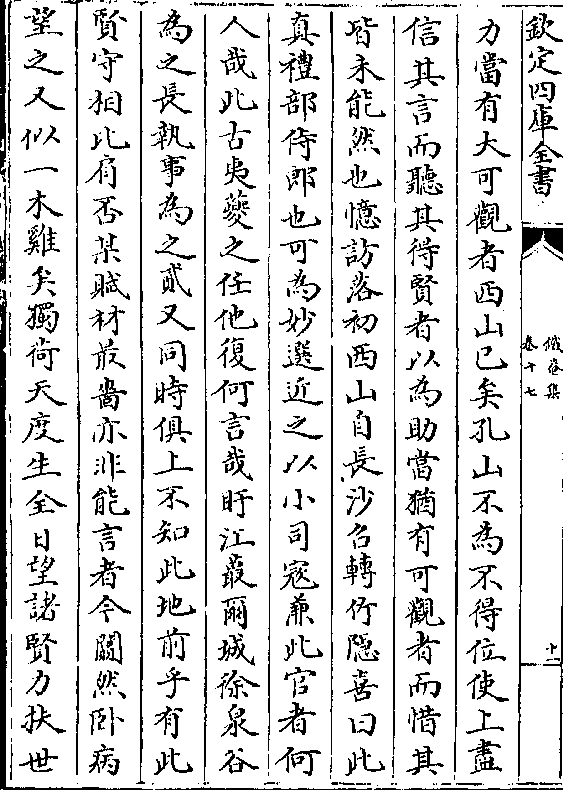 欽定四庫全書
鐵菴集
卷十七
十一
力當有大可觀者西山已矣孔山不為不得位使上盡
信其言而聽其得賢者以為助當猶有可觀者而惜其
皆未能然也憶訪落初西山自長沙召轉竹隠喜曰此
真禮部侍郎也可為妙選近之以小司寇兼此官者何
人哉此古夷夔之任他復何言哉盱江蕞爾城徐泉谷
為之長執事為之貳又同時俱上不知此地前乎有此
賢守相比肩否某賦材最嗇亦非能言者今闗然卧病
望之又似一木雞矣獨荷天度生全日望諸賢力扶世